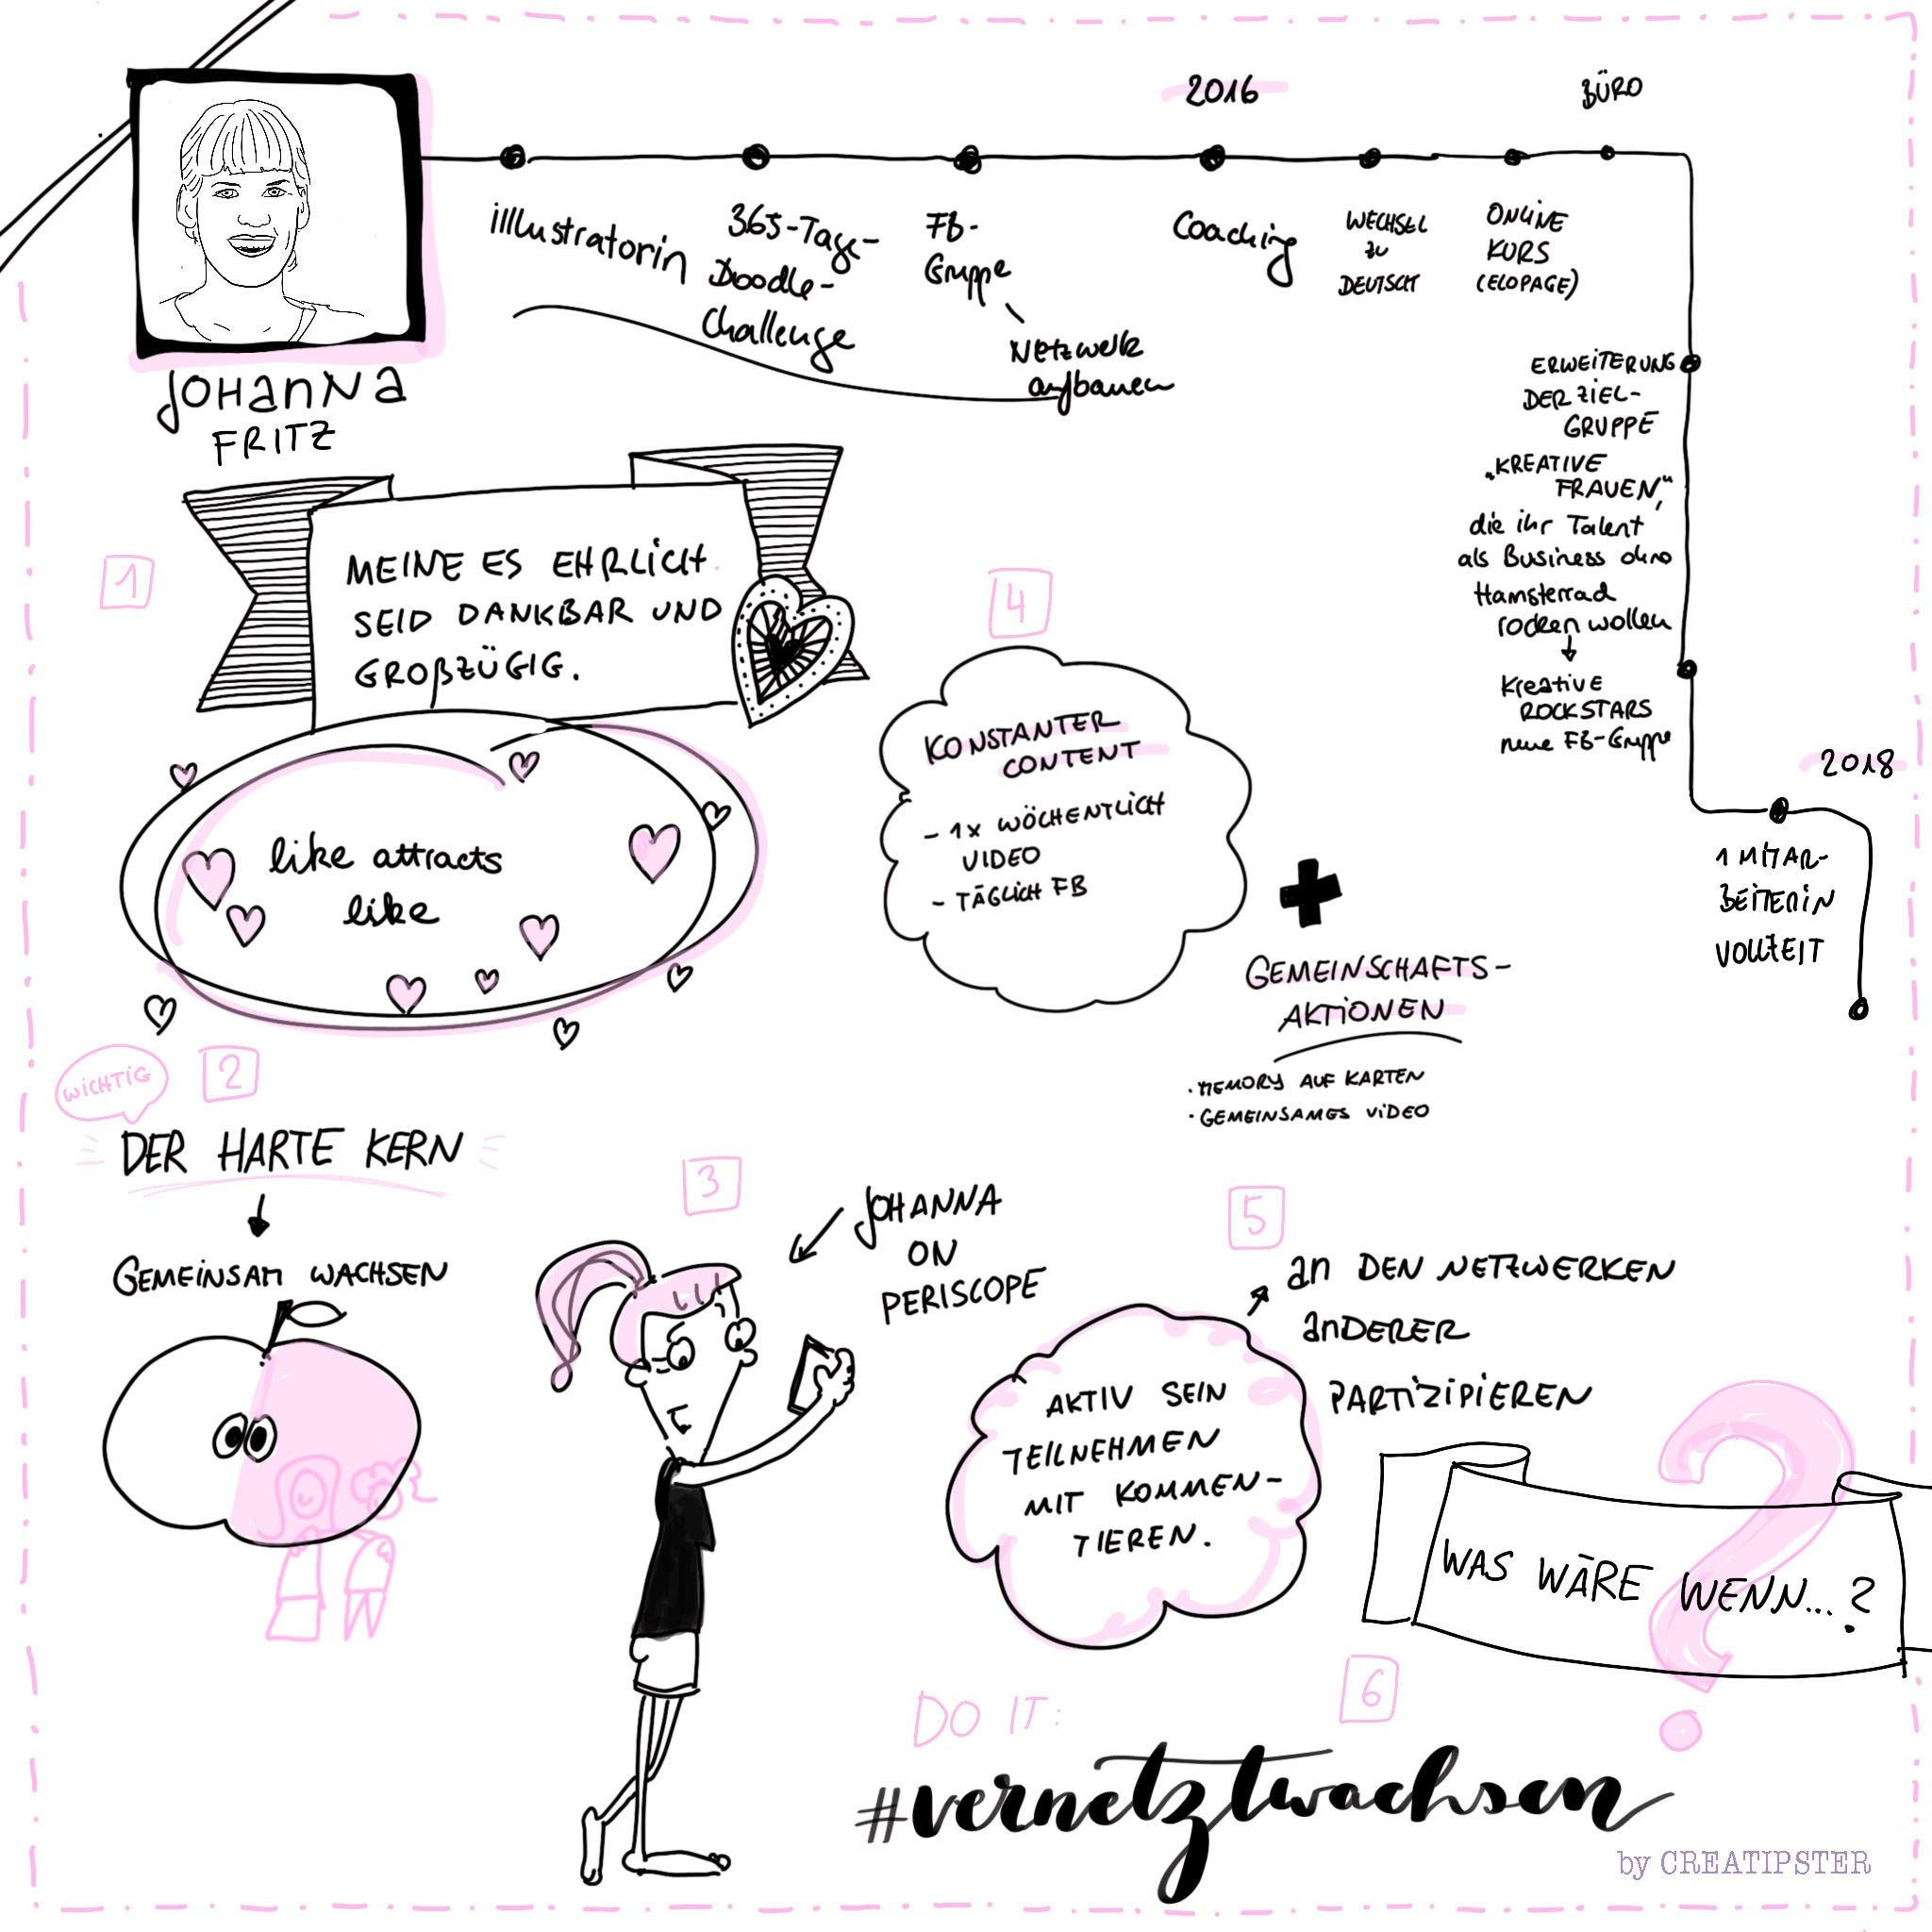 JOHANNA
FRITZ
illustratorin
365-Tage-
Doodle-
Challenge
FB-
Gruppe
Netzwerk
aufbauen
2016
Coaching
WECHSEL
ZU
DEUTSCH
ONLINE
KURS
(ELOPAGE)
BÜRO
ERWEITERUNG
DER ZIEL-
GRUPPE
„KREATIVE
FRAUEN,“
die ihr Talent
als Business ohne
Hamsterrad
rocken wollen
Kreative
ROCKSTARS
neue FB-Gruppe
2018
1 MITAR-
BEITERIN
VOLLZEIT
1
MEINE ES EHRLICH.
SEID DANKBAR UND
GROßZÜGIG.
like attracts
like
WICHTIG
2
DER HARTE KERN
GEMEINSAM WACHSEN
3
JOHANNA
ON
PERISCOPE
4
KONSTANTER
CONTENT
- 1x WÖCHENTLICH
VIDEO
- TÄGLICH FB
GEMEINSCHAFTS-
AKTIONEN
· MEMORY AUF KARTEN
· GEMEINSAMES VIDEO
5
an DEN NETZWERKEN
anDERER
PARTIZIPIEREN
AKTIV SEIN
TEILNEHMEN
MIT KOMMEN-
TIEREN.
WAS WÄRE WENN...?
6
DO IT:
#vernetztwachsen
by CREATIPSTER